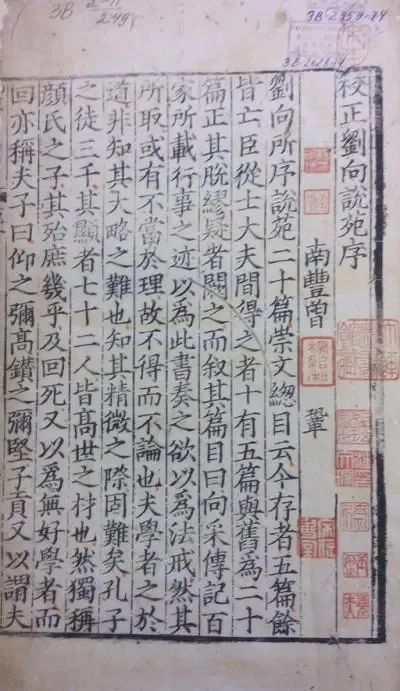 校正劉向說苑序
南豐曾 鞏
劉向所序說苑二十篇崇文總目云今存者五篇餘
皆亡臣從士大夫間得之者十有五篇與舊爲二十
篇正其脫繆疑者闕之而叙其篇目曰向采傳記百
家所載行事之迹以爲此書奏之欲以爲法戒然其
所取或有不當於理故不得而不論也夫學者之於
道非知其大略之難也知其精微之際固難矣孔子
之徒三千其顯者七十二人皆髙世之材也然獨稱
顔氏之子其殆庶幾乎及回死又以爲無好學者而
回亦稱夫子曰仰之彌髙鑽之彌堅子貢又以謂夫